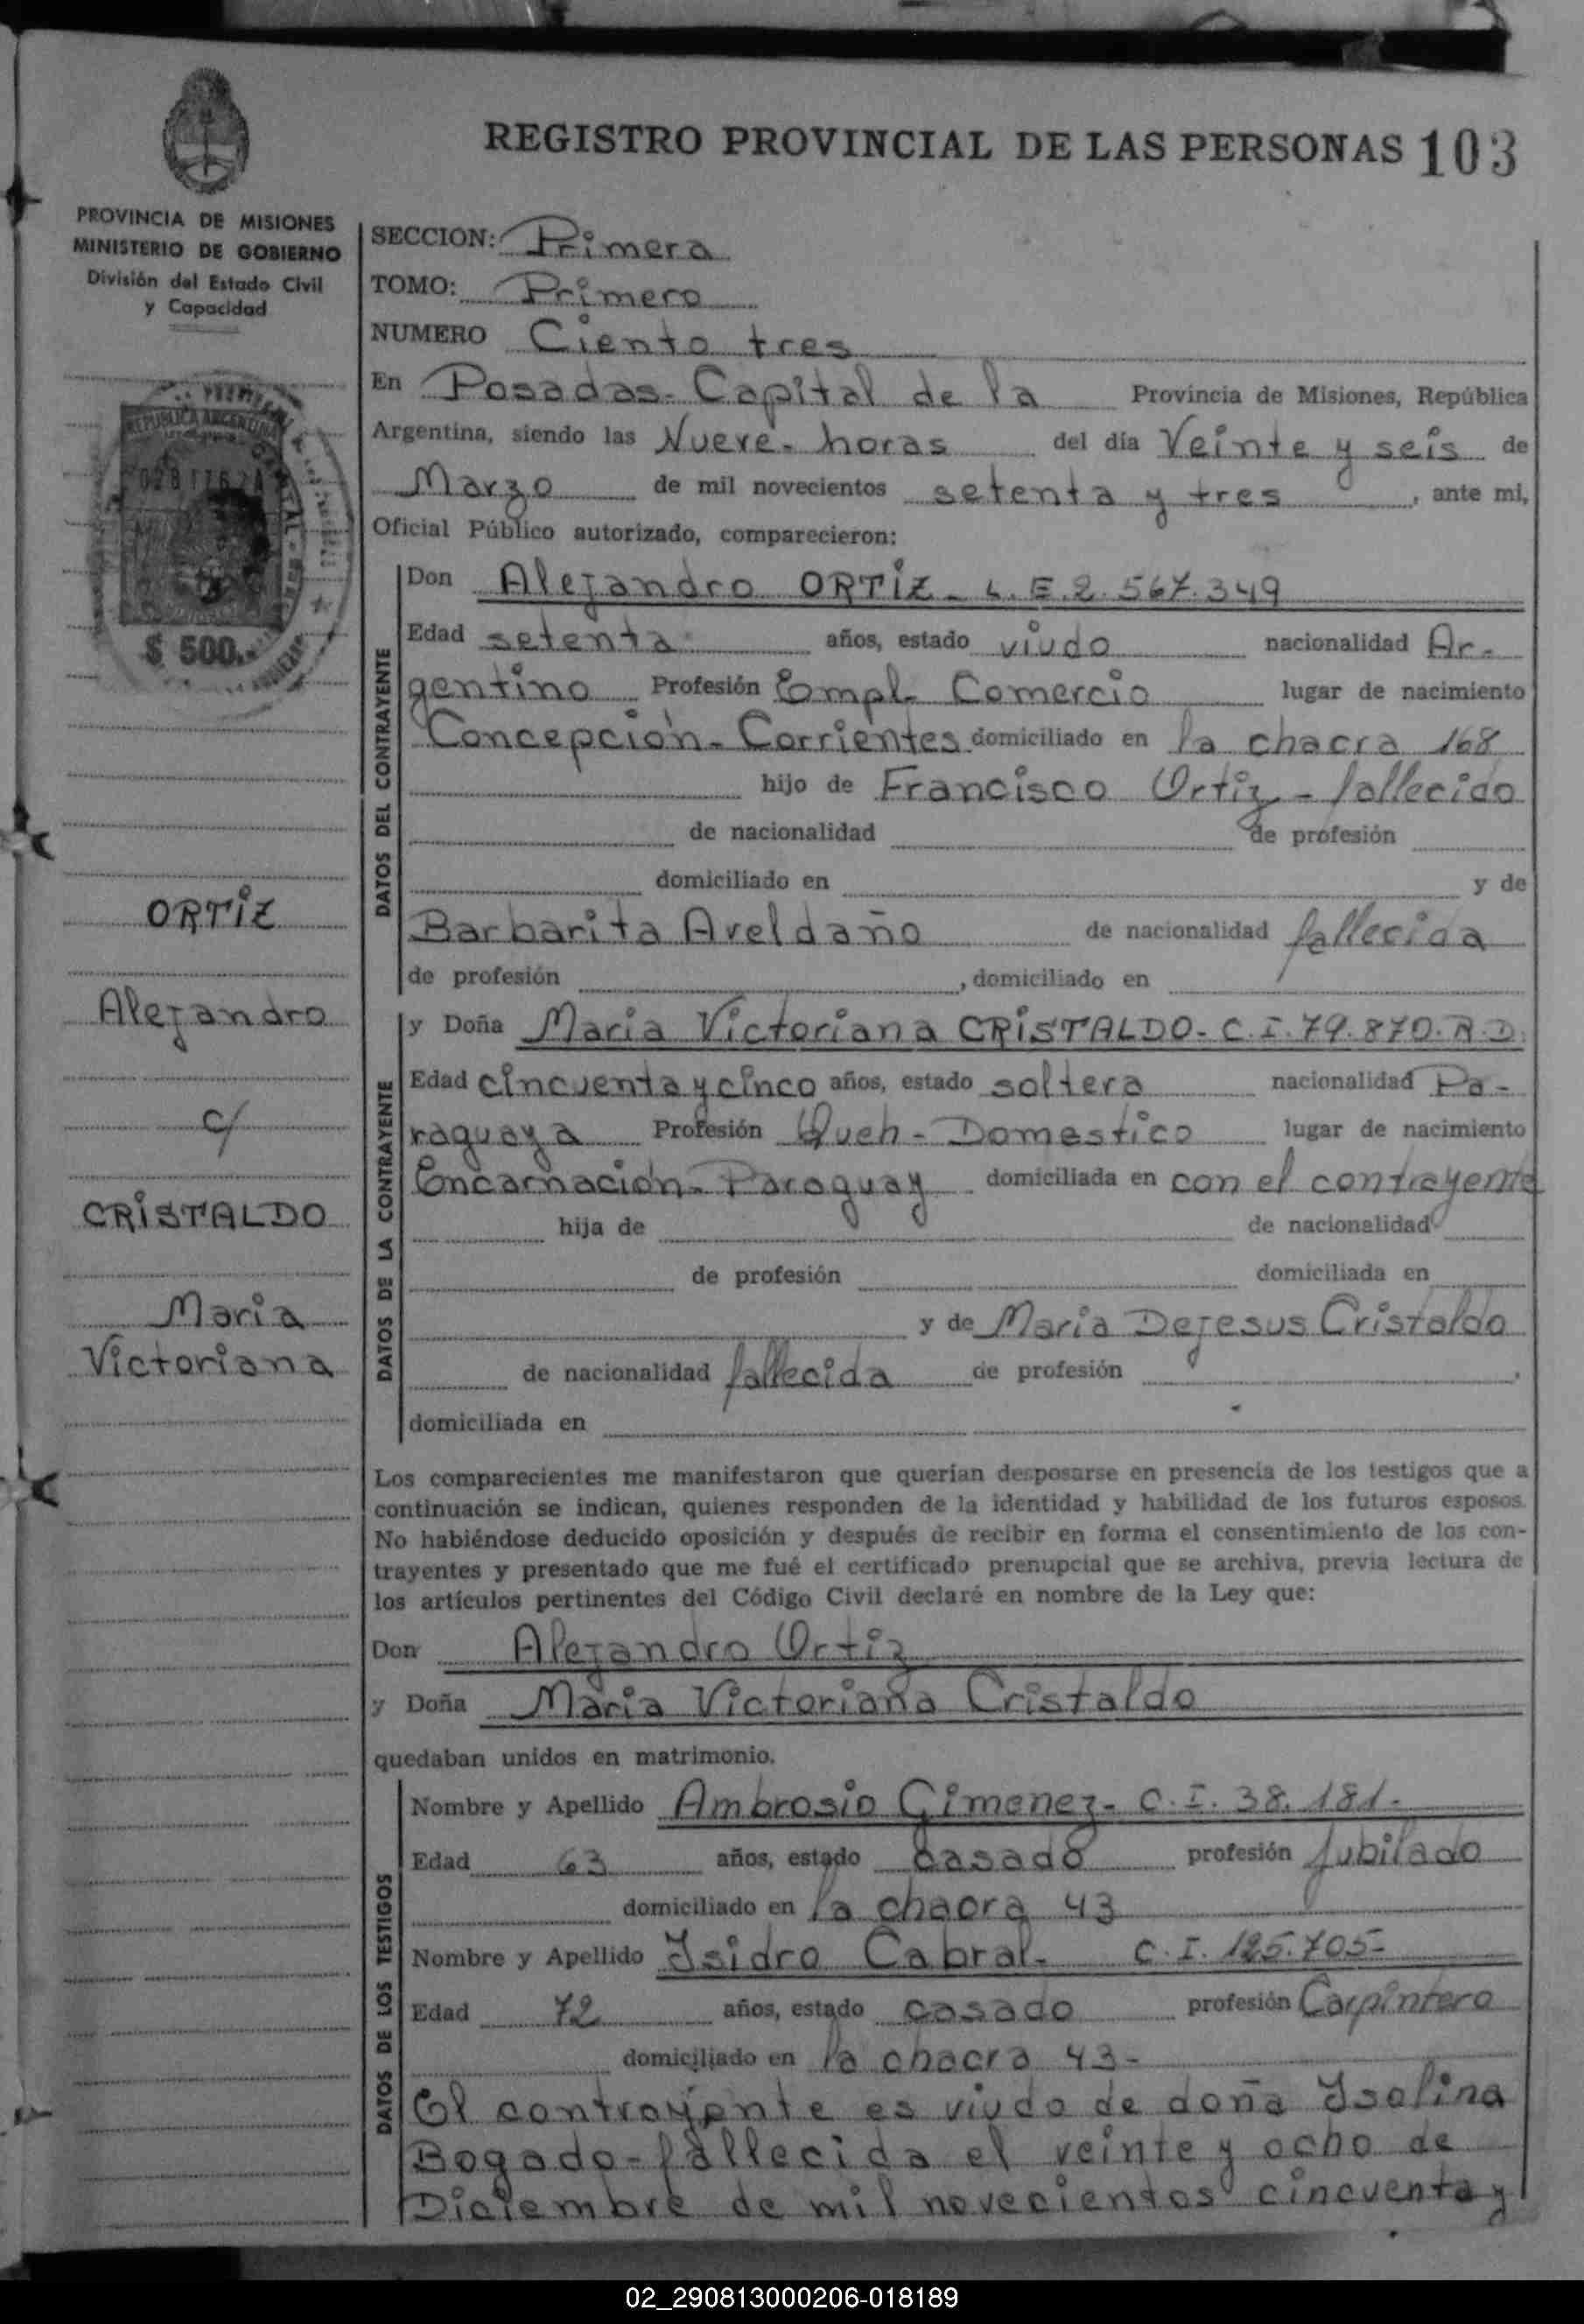 REGISTRO PROVINCIAL DE LAS PERSONAS 103
PROVINCIA DE MISIONES
MINISTERIO DE GOBIERNO
División del Estado Civil
y Capacidad
REPUBLICA ARGENTINA
$ 500.-
ORTIZ
Alejandro
c/
CRISTALDO
Maria
Victoriana
SECCION: Primera
TOMO: Primero
NUMERO Ciento tres
En Posadas- Capital de la Provincia de Misiones, República
Argentina, siendo las Nueve- horas del día Veinte y seis de
Marzo de mil novecientos setenta y tres, ante mi,
Oficial Público autorizado, comparecieron:
DATOS DEL CONTRAYENTE
Don Alejandro ORTIZ- L.E.2.567.349
Edad setenta años, estado viudo nacionalidad Ar-
gentino Profesión Empl- Comercio lugar de nacimiento
Concepción- Corrientes domiciliado en la chacra 168
hijo de Francisco Ortiz - fallecido
de nacionalidad de profesión
domiciliado en y de
Barbarita Aveldaño de nacionalidad fallecida
de profesión , domiciliado en
DATOS DE LA CONTRAYENTE
y Doña Maria Victoriana CRISTALDO- C.I.79.870.R.D.
Edad cincuenta y cinco años, estado soltera nacionalidad Pa-
raguaya Profesión Queh- Domestico lugar de nacimiento
Encarnación- Paraguay domiciliada en con el contrayente
hija de de nacionalidad
de profesión domiciliada en
y de Maria Dejesus Cristaldo
de nacionalidad fallecida de profesión
domiciliada en
Los comparecientes me manifestaron que querían desposarse en presencia de los testigos que a
continuación se indican, quienes responden de la identidad y habilidad de los futuros esposos.
No habiéndose deducido oposición y después de recibir en forma el consentimiento de los con-
trayentes y presentado que me fué el certificado prenupcial que se archiva, previa lectura de
los artículos pertinentes del Código Civil declaré en nombre de la Ley que:
Don Alejandro Ortiz
y Doña Maria Victoriana Cristaldo
quedaban unidos en matrimonio.
DATOS DE LOS TESTIGOS
Nombre y Apellido Ambrosio Gimenez- C.I. 38.181-
Edad 63 años, estado casado profesión Jubilado
domiciliado en la chacra 43
Nombre y Apellido Isidro Cabral- C.I. 125.705-
Edad 72 años, estado casado profesión Carpintero
domiciliado en la chacra 43-
El contrayente es viudo de doña Isolina
Bogado- fallecida el veinte y ocho de
Diciembre de mil novecientos cincuenta y
02_290813000206-018189